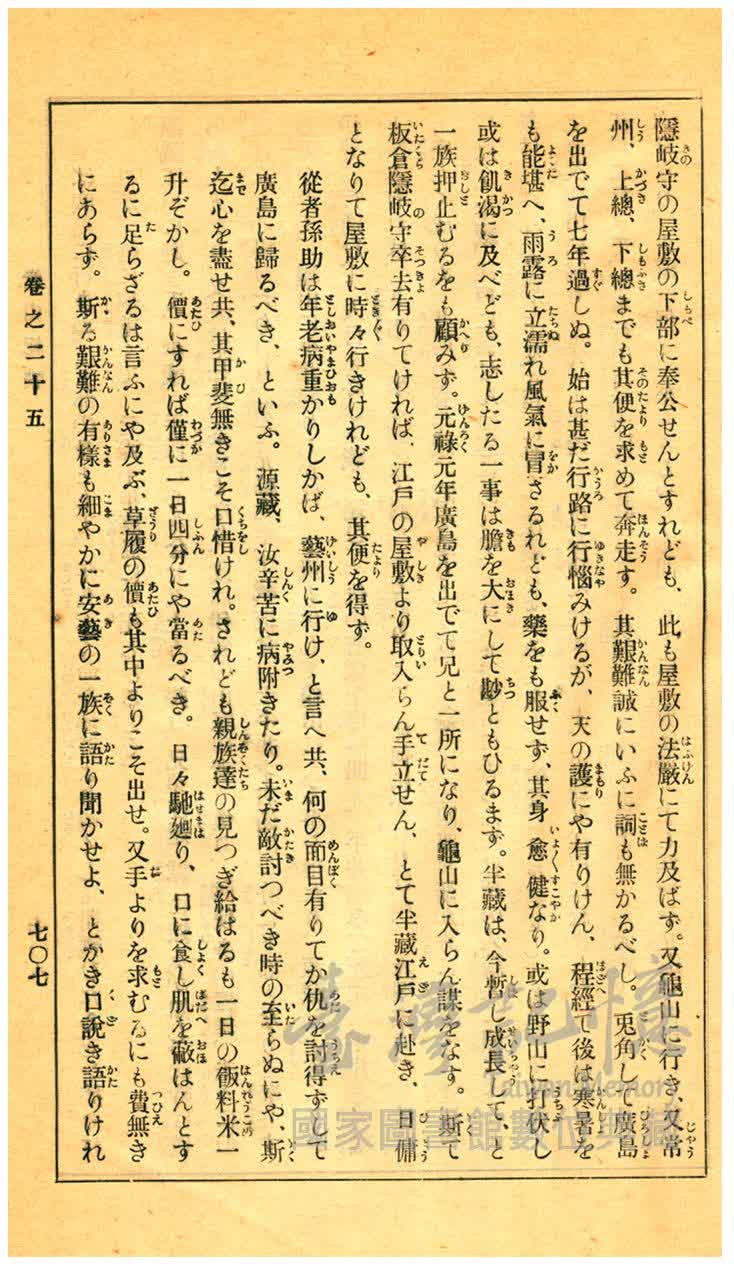 隱岐守の屋敷の下部に奉公せんとすれども、此も屋敷の法嚴にて力及ばず。又龜山に行き、又常
州、上總、下總までも其便を求めて奔走す。其艱難誠にいふに詞も無かるべし。兎角して廣島
を出でて七年過しぬ。始は甚だ行路に行惱みけるが、天の護にや有りけん、程經て後は寒暑を
も能堪へ、雨露に立濡れ風氣に冒さるれども、藥をも服せず、其身愈健なり。或は野山に打伏し
或は飢渴に及べども、志したる一事は膽を大にして尠ともひるまず。半藏は、今暫し成長して、と
一族押止むるをも顧みず。元祿元年廣島を出でて兄と一所になり、龜山に入らん謀をなす。斯て
板倉隱岐守卒去有りてければ、江戸の屋敷より取入らん手立せん、とて半藏江戸に赴き、日傭
となりて屋敷に時々行きけれども、其便を得ず。
從者孫助は年老病重かりしかば、藝州に行け、と言へ共、何の面目有りてか仇を討得ずして
廣島に歸るべき、といふ。源藏、汝辛苦に病附きたり。未だ敵討つべき時の至らぬにや、斯
迄心を盡せ共、其甲斐無きこそ口惜けれ。されども親族達の見つぎ給はるも一日の飯料米一
升ぞかし。價にすれば僅に一日四分にや當るべき。日々馳廻り、口に食し肌を蔽はんとす
るに足らざるは言ふにや及ぶ、草履の價も其中よりこそ出せ。又手よりを求むるにも費無き
にあらず。斯る艱難の有樣も細やかに安藝の一族に語り聞かせよ、とかき口說き語りけれ
卷之二十五
七〇七
臺灣記憶
Taiwan Memory
國家圖書館數位典藏